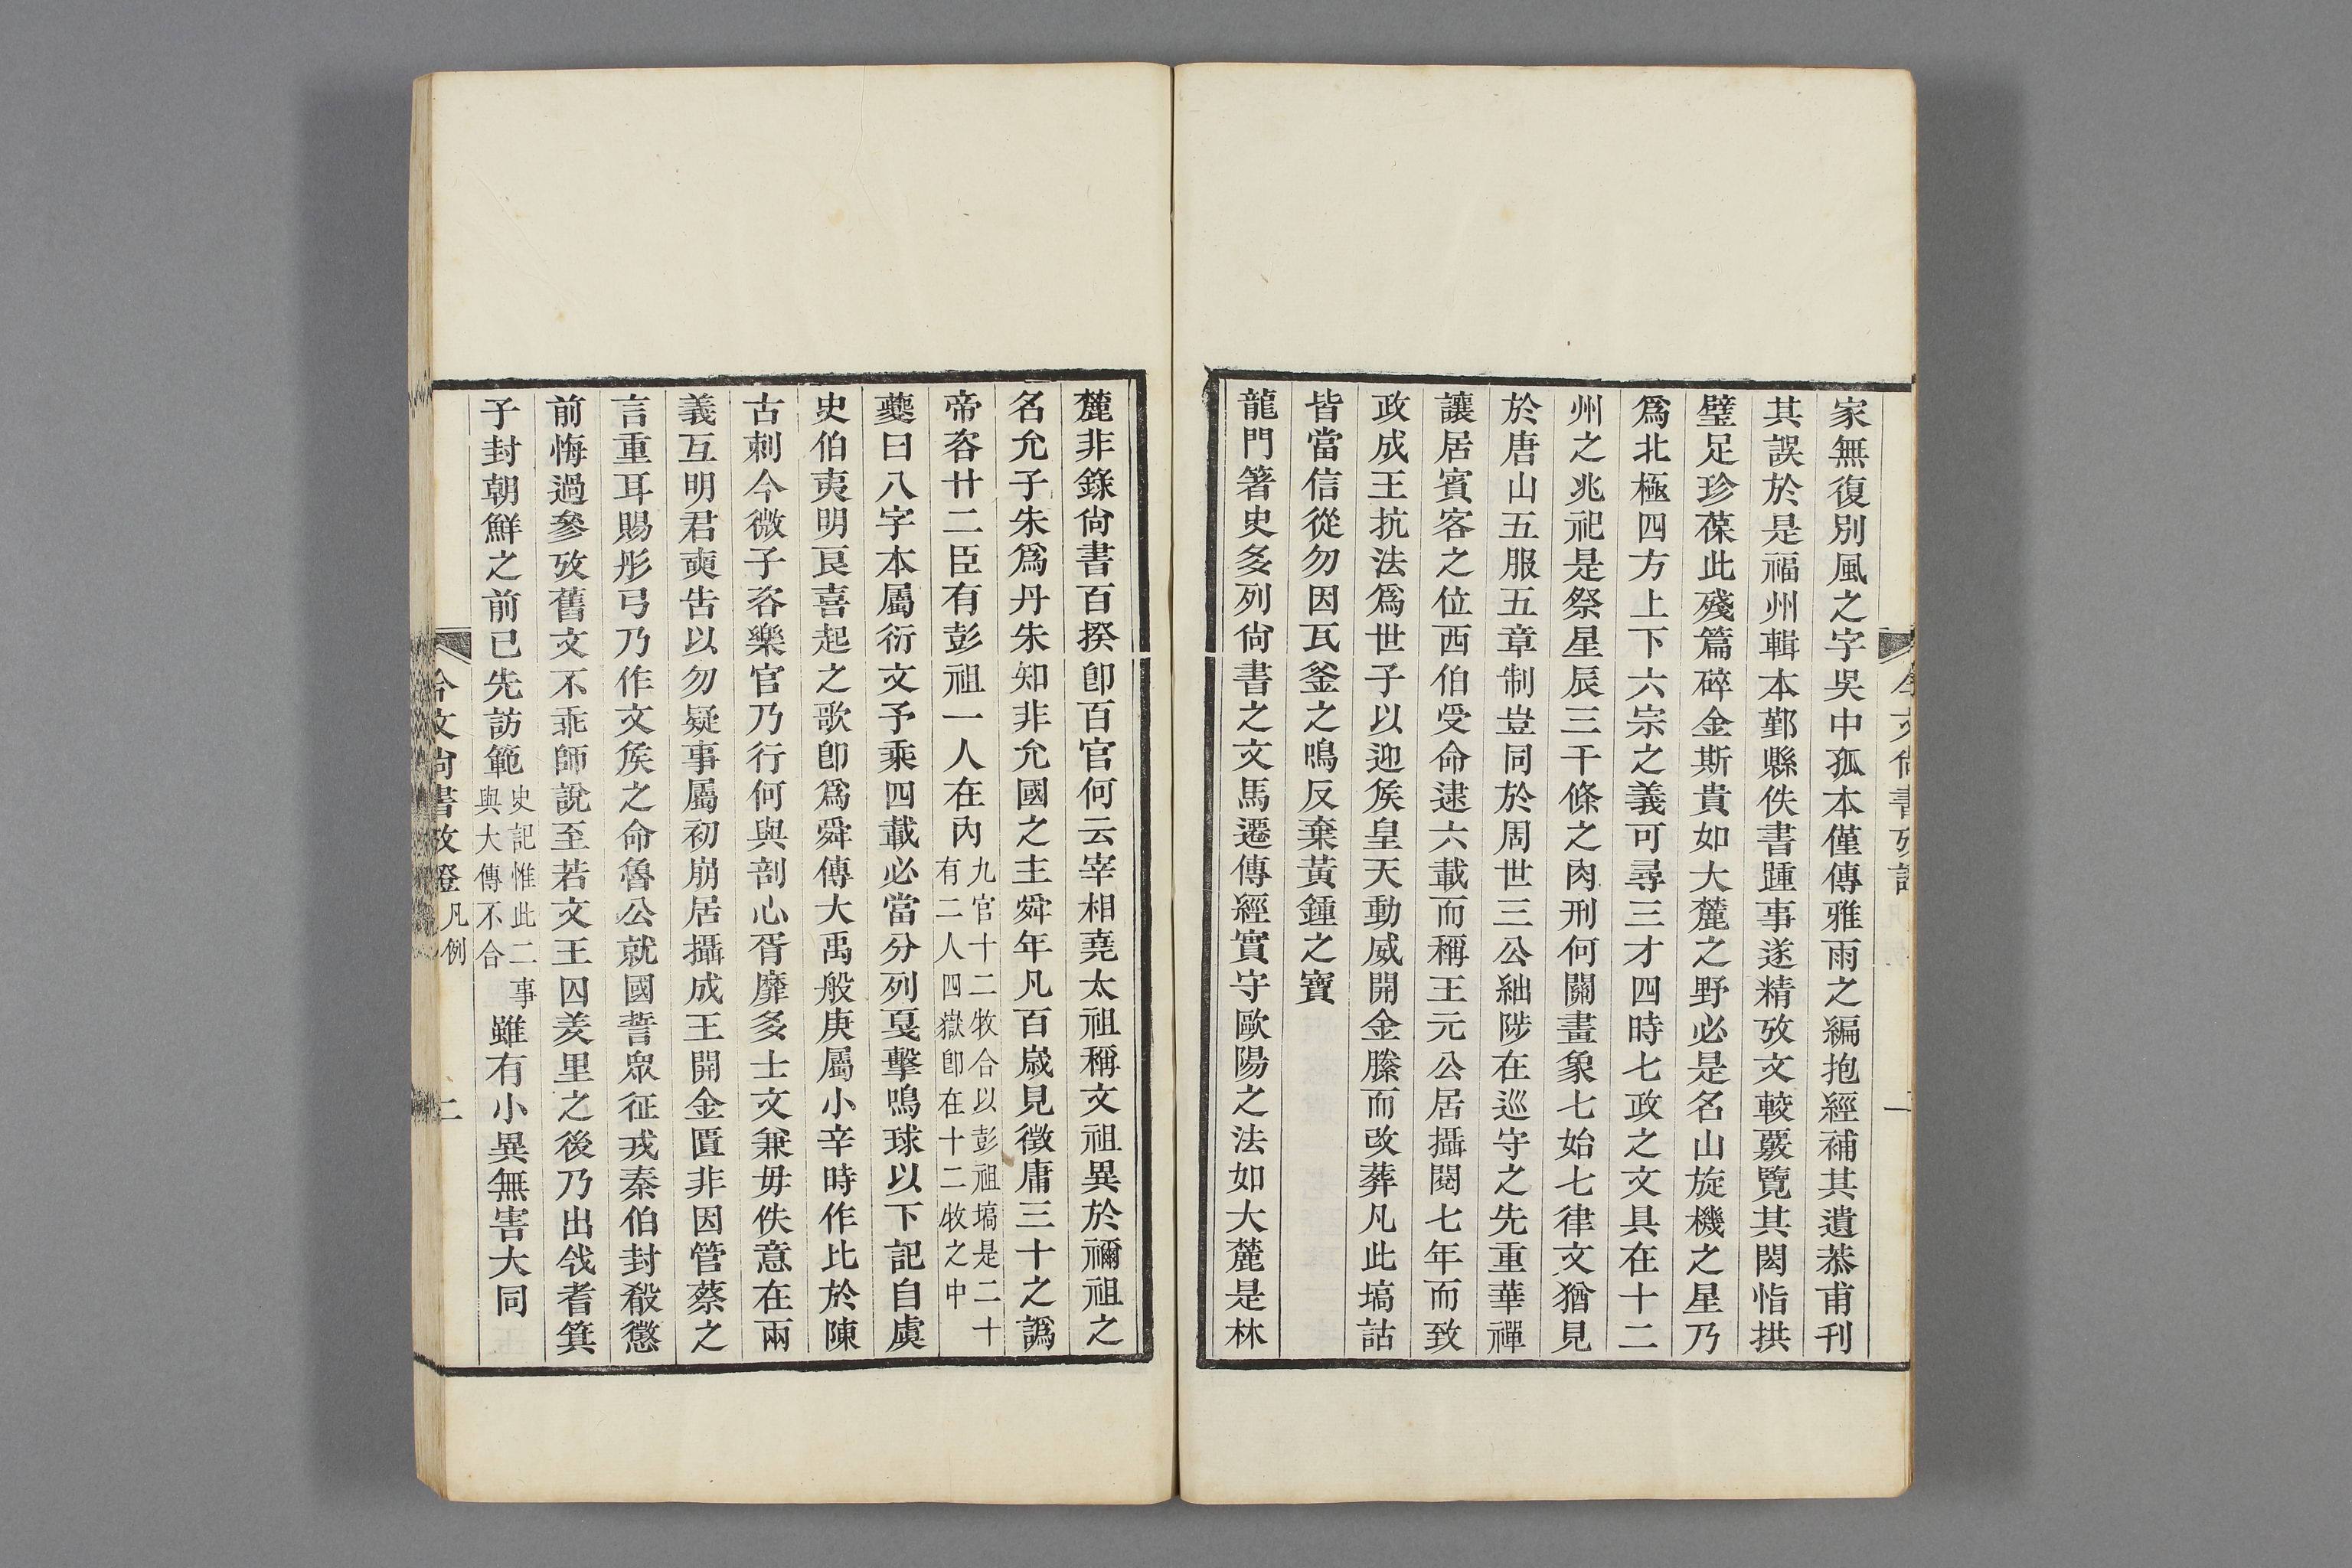 家無復別風之字吳中孤本僅傳雅雨之編抱經補其遺恭甫刊
其誤於是福州輯本鄞縣佚書踵事遂精攷文較覈覽其閎恉拱
璧足珍葆此殘篇碎金斯貴如大麓之野必是名山旋機之星乃
爲北極四方上下六宗之義可尋三才四時七政之文具在十二
州之兆祀是祭星辰三千條之肉刑何關畫象七始七律文猶見
於唐山五服五章制豈同於周世三公絀陟在巡守之先重華禪
讓居賓客之位西伯受命逮六載而稱王元公居攝閱七年而致
政成王抗法爲世子以迎矦皇天動威開金縢而改葬凡此塙詁
皆當信從勿因瓦釜之鳴反棄黃鍾之寶
龍門箸史多列尙書之文馬遷傳經實守歐陽之法如大麓是林
麓非錄尙書百揆卽百官何云宰相堯太祖稱文祖異於禰祖之
名允子朱爲丹朱知非允國之主舜年凡百歲見徵庸三十之譌
帝咨廿二臣有彭祖一人在內九官十二牧合以彭祖塙是二十
有二人四嶽卽在十二牧之中
夔曰八字本屬衍文予乘四載必當分列戛擊鳴球以下記自虞
史伯夷明良喜起之歌卽爲舜傳大禹般庚屬小辛時作比於陳
古刺今微子咨樂官乃行何與剖心胥靡多士文兼毋佚意在兩
義互明君奭告以勿疑事屬初崩居攝成王開金匱非因管蔡之
言重耳賜彤弓乃作文矦之命魯公就國誓眾征戎秦伯封殽懲
前悔過參攷舊文不乖師說至若文王囚羑里之後乃出戗耆箕
子封朝鮮之前已先訪範史記惟此二事
與大傳不合雖有小異無害大同
今文尙書攷證 凡例 二